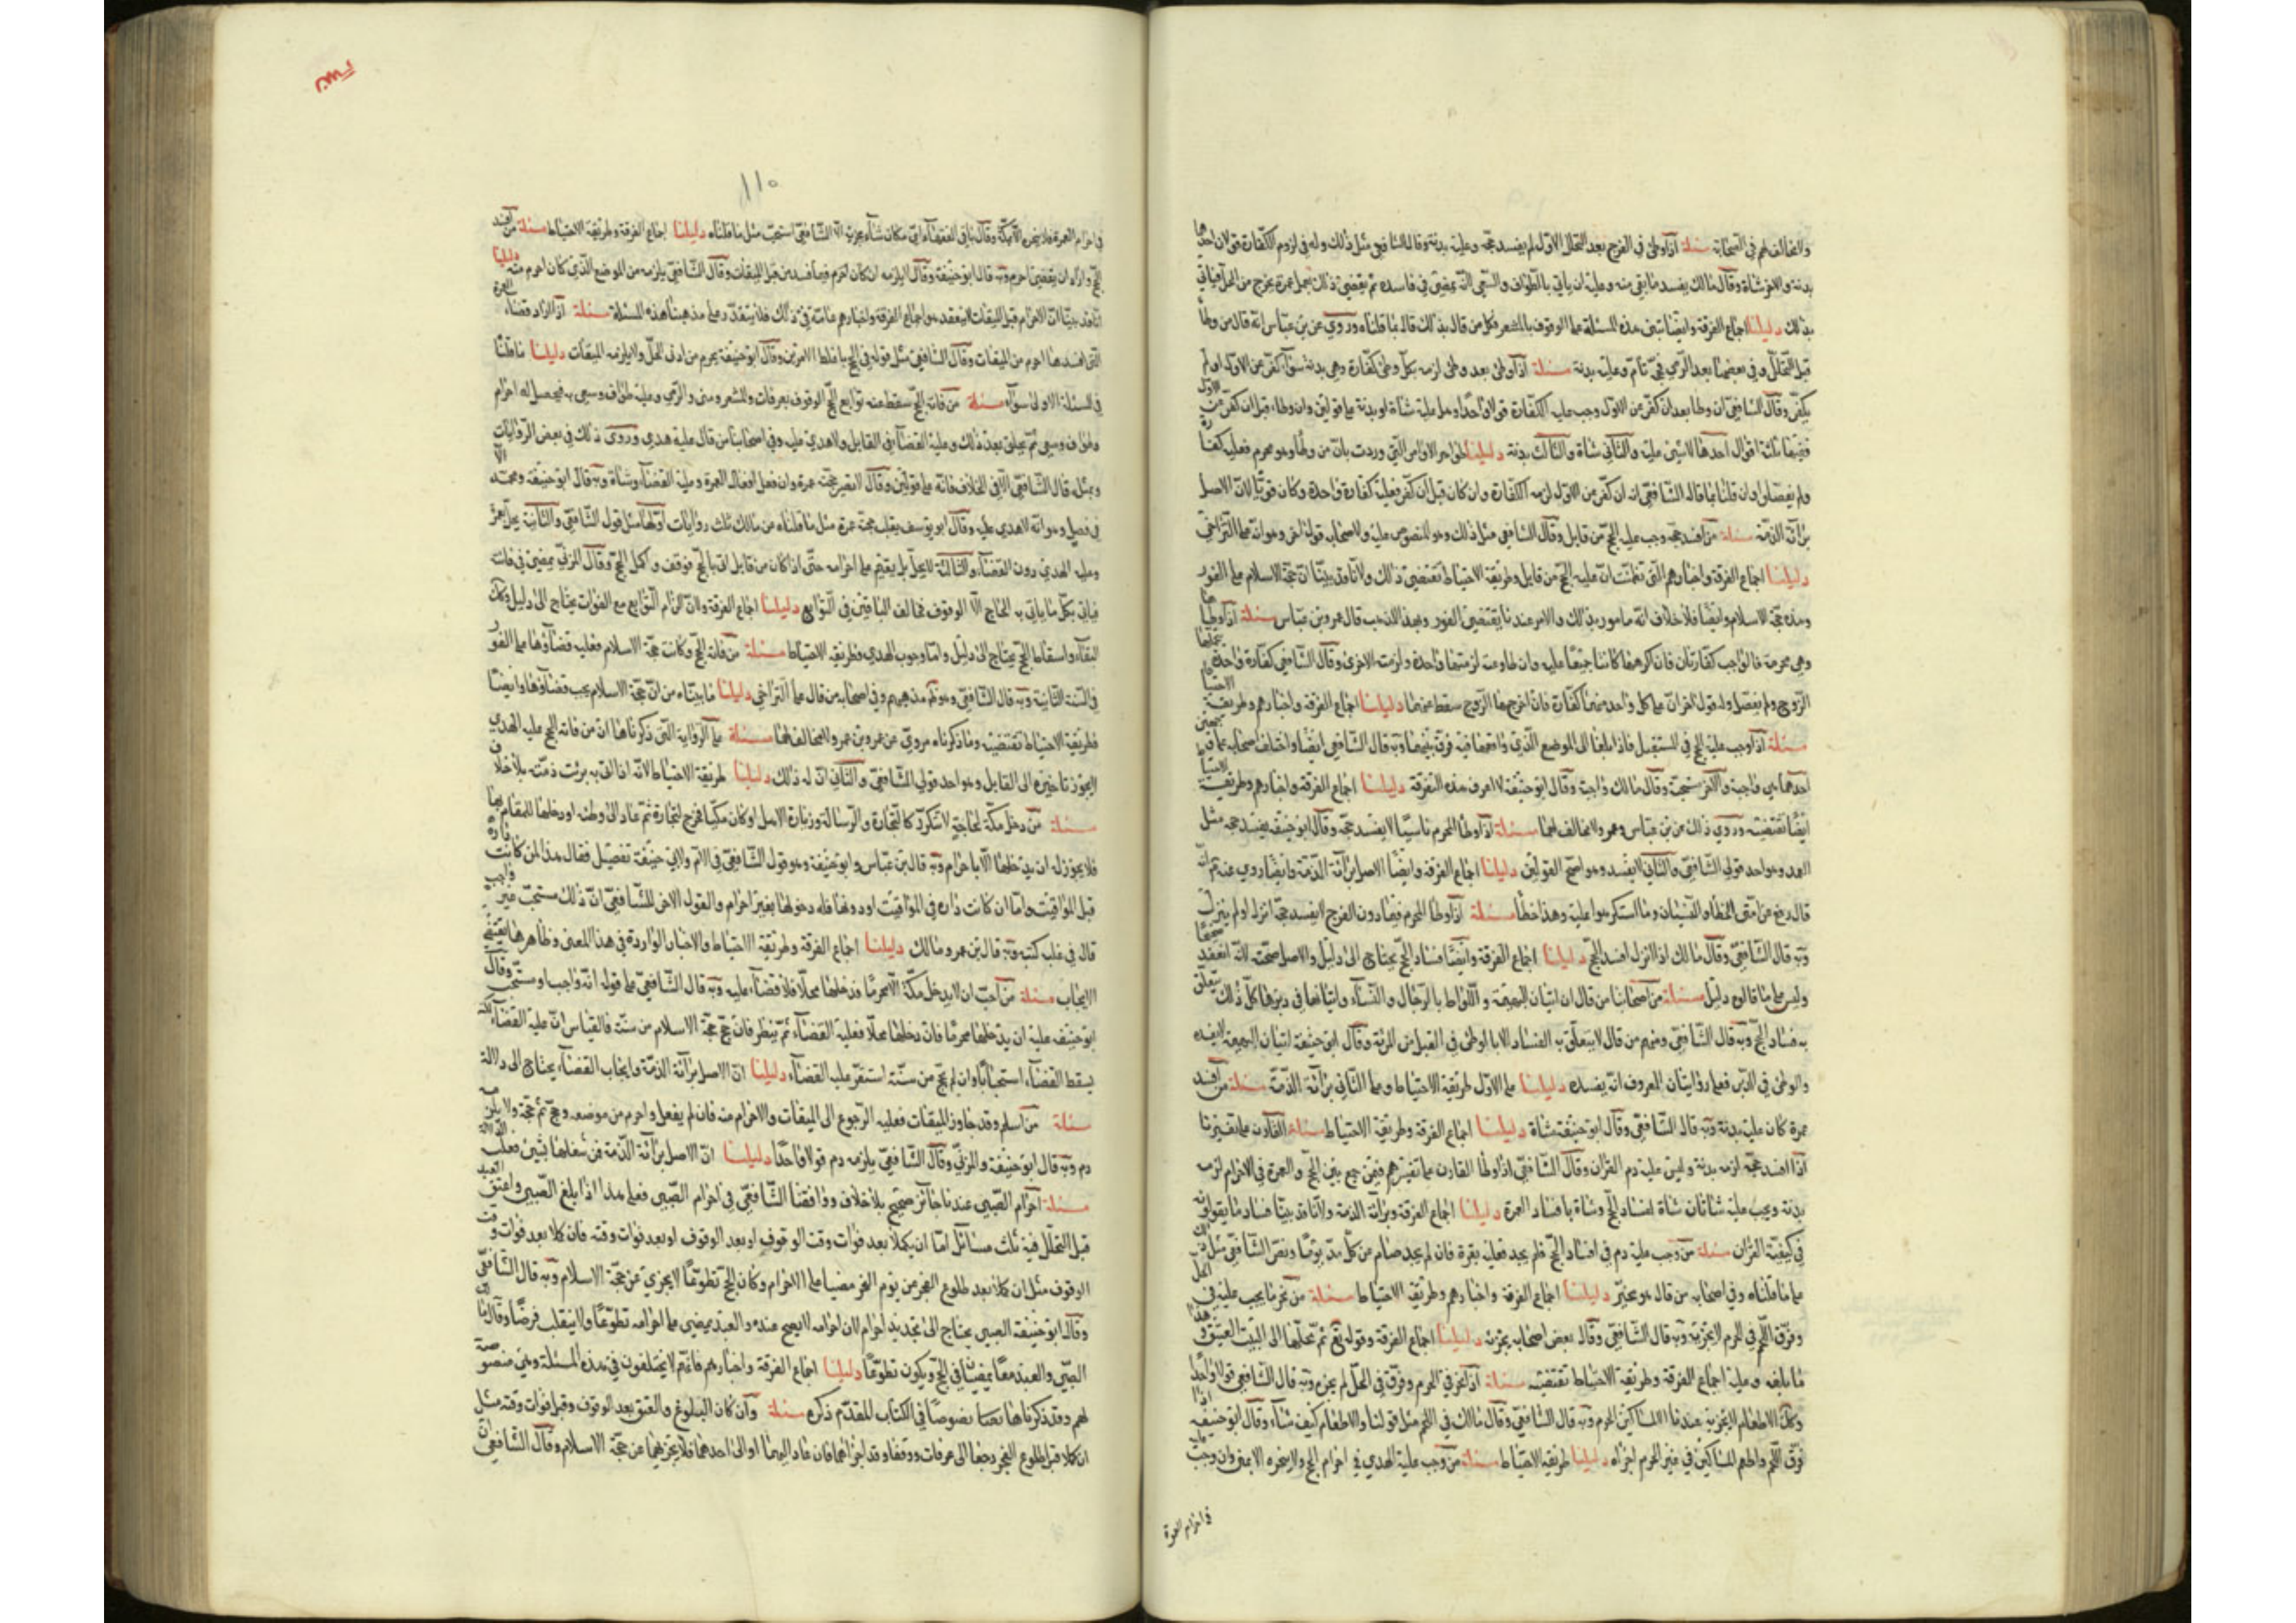 ولا مخالف لهم في الصحابة مسئلة اذا وطئ في الفرج بعد التحلل الاول لم يفسد حجه وعليه بدنة وقال الشافعي مثل ذلك وله في لزوم الكفارة قولان احدهما
بدنة والاخر شاة وقال مالك يفسد ما بقي منه وعليه ان ياتي بالطواف والسعي لانه يمضي في فاسده ثم يقضي ذلك بعمل عمرة يخرج من الحل فياتي
بذلك دليلنا اجماع الفرقة وايضا تبنى هذه المسئلة على الوقوف بالمشعر فكل من قال بذلك قال بما قلناه وروي عن بن عباس انه قال من وطأ
قبل التحلل وفي بعضها بعد الرمي فحجه تام وعليه بدنة مسئلة اذا وطئ بعد وطئ لزمه بكل وطئ كفارة وهي بدنة سواء كفر عن الاول او لم
يكفر وقال الشافعي ان وطأ بعد ان كفر عن الاول وجب عليه الكفارة قولا واحدا وهل عليه شاة او بدنة على قولين وان وطأ قبل ان يكفر عن الاول
ففيها ثلثة اقوال احدها لا شيء عليه والثاني شاة والثالث بدنة دليلنا ظواهر الاوامر التي وردت بان من وطأ وهو محرم فعليه كفارة
ولم يفصلوا وان قلنا بما قاله الشافعي انه ان كفر عن الاول لزمه الكفارة وان كان قبل ان كفر فعليه كفارة واحدة وكان قويا لان الاصل
برائة الذمة مسئلة من افسد حجه وجب عليه الحج من قابل وقال الشافعي مثل ذلك وهو المنصوص عليه ولاصحابه قول اخر وهو انه على التراخي
دليلنا اجماع الفرقة واخبارهم التي تضمنت ان عليه الحج من قابل وطريقة الاحتياط تقتضي ذلك ولانا قد بينا ان حجة الاسلام على الفور
وهذه حجة الاسلام وايضا فلا خلاف انه مامور بذلك والامر عندنا يقتضي الفور وبهذا المذهب قال عمر وبن عباس مسئلة اذا وطئها
وهي محرمة فالواجب كفارتان فان اكرهها كانتا جميعا عليه وان طاوعته لزمته واحدة ولزمت الاخرى وقال الشافعي كفارة واحدة يتحملها
الزوج ولم يفصل وله قول اخر ان على كل واحد منهما كفارة فان اخرجها الزوج سقط عنهما دليلنا اجماع الفرقة واخبارهم وطريقة الاحتياط
مسئلة اذا وجب عليه الحج في المستقبل فاذا بلغا الى الموضع الذي واقعها فيه فرق بينهما وبه قال الشافعي ايضا واختلف اصحابه على وجهين
احدهما هي واجبة والاخر مستحبة وقال مالك واجبة وقال ابو حنيفة لا اعرف هذه التفرقة دليلنا اجماع الفرقة واخبارهم وطريقة الاحتياط
ايضا تقتضيه وروي ذلك عن بن عباس وعمر ولا مخالف لهما مسئلة اذا وطأ المحرم ناسيا لا يفسد حجه وقال ابو حنيفة يفسد حجه مثل
العمد وهو احد قولي الشافعي والثاني لا يفسد وهو اصح القولين دليلنا اجماع الفرقة وايضا الاصل برائة الذمة وايضا روي عنه ع انه
قال رفع عن امتى الخطأ والنسيان وما استكرهوا عليه وهذا خطأ مسئلة اذا وطأ المحرم فيما دون الفرج لا يفسد حجه انزل او لم ينزل
وبه قال الشافعي وقال مالك اذا انزل افسد الحج دليلنا اجماع الفرقة وايضا فساد الحج يحتاج الى دليل والاصل صحته لانه انعقد صحيحا
وليس على ما قالوه دليل مسئلة من اصحابنا من قال ان اتيان البهيمة واللواط بالرجال والنساء واتيانها في دبرها كل ذلك يتعلق
به فساد الحج وبه قال الشافعي ومنهم من قال لا يتعلق به الفساد الا بالوطئ في القبل من المرئة وقال ابو حنيفة اتيان البهيمة لا يفسده
والوطئ في الدبر فعلى روايتان المعروف انه يفسده دليلنا على الاول طريقة الاحتياط وعلى الثاني برائة الذمة مسئلة من افسد
عمرة كان عليه بدنة وبه قال الشافعي وقال ابو حنيفة شاة دليلنا اجماع الفرقة وطريقة الاحتياط مسئلة القارن على تفسيرنا
اذا افسد حجه لزمه بدنة وليس عليه دم القران وقال الشافعي اذا وطأ القارن على تفسيرهم فيمن جمع بين الحج والعمرة في الاحرام لزمه
بدنة ويجب عليه شاتان شاة افساد الحج وشاة بافساد العمرة دليلنا اجماع الفرقة وبرائة الذمة ولانا قد بينا فساد ما يقولونه
في كيفية القران مسئلة من وجب عليه دم في افساد الحج فلم يجد فعليه بقرة فان لم يجد صام عن كل مد يوما ونص الشافعي مثل ذلك
على ما قلناه وفي اصحابه من قال هو مخير دليلنا اجماع الفرقة واخبارهم وطريقة الاحتياط مسئلة من نحر ما يجب عليه في الحل
وفرق اللحم في الحرم لا يجزيه وبه قال الشافعي وقال بعض اصحابه يجزيه دليلنا اجماع الفرقة وقوله تع ثم محلها الى البيت العتيق و
ما بلغه وعليه اجماع الفرقة وطريقة الاحتياط تقتضيه مسئلة اذا نحر في الحرم وفرق في الحل لم يجزه وبه قال الشافعي قولا واحدا
وكك الاطعام لا يجزيه عندنا الا لمساكين الحرم وبه قال الشافعي وقال مالك في اللحم مثل قولنا والاطعام كيف شاء وقال ابو حنيفة اذا
فرق اللحم واطعم المساكين في غير الحرم اجزاه دليلنا طريقة الاحتياط مسئلة من وجب عليه الهدي في احرام الحج ولا ينحره الا بمنى وان وجب
في احرام العمرة
١١٥
في احرام العمرة فلا ينحره الا بمكة وقال باقي الفقهاء اي مكان شاء يجزيه الا ان الشافعي استحب مثل ما قلناه دليلنا اجماع الفرقة وطريقة الاحتياط مسئلة من افسد
الحج واراد ان يقضيها احرم وبه قال ابو حنيفة وقال ايلزمه ان كان احرم فيما افسده من قبل الميقات وقال الشافعي يلزمه من الموضع الذي كان احرم منه دليلنا
انا قد بينا ان الاحرام قبل الميقات لا ينعقد وهو اجماع الفرقة واخبارهم عامة في ذلك فلا يتقدر على مذهبنا هذه المسئلة مسئلة اذا اراد قضاء العمرة
التى افسدها احرم من الميقات وقال الشافعي مثل قوله في الحج باغلظ الامرين وقال ابو حنيفة يحرم من ادنى الحل ولا يلزمه الميقات دليلنا ما قلنا
في المسئلة الاولى سواء مسئلة من فاته الحج سقط عنه توابع الحج الوقوف بعرفات والمشعر ومنى والرمي وعليه طواف وسعي به فيحصل له احرام
وطواف وسعي ثم يحلق بعد ذلك وعليه القضاء في القابل ولا هدي عليه وفي اصحابنا من قال عليه هدي وروي ذلك في بعض الروايات
وبمثله قال الشافعي الا في الحلاق فانه على قولين وقال لا يصير حجه عمرة وان فعل افعال العمرة وعليه القضاء وشاة وبه قال ابو حنيفة ومحمد الا
في فصل وهو انه لا هدي عليه وقال ابو يوسف ينقلب حجه عمرة مثل ما قلناه عن مالك ثلث روايات اولها مثل قول الشافعي والثانية يحل بعمرة
وعليه الهدي دون القضاء والثالثة لا يحل بل يقيم على احرامه حتى اذا كان من قابل اتى بالحج فوقف واكمل الحج وقال المزني يمضي في فائته
فياتي بكل ما ياتي به الحاج الا الوقوف فخالف الباقين في التوابع دليلنا اجماع الفرقة ولان الزام التوابع مع الفوات يحتاج الى دليل وكك
البقاء واسقاط الحج يحتاج الى دليل واما وجوب الهدي فطريقه الاحتياط مسئلة من فاته الحج وكانت حجة الاسلام فعليه قضاؤها على الفور
في السنة الثانية وبه قال الشافعي وهو ظم مذهبهم وفي اصحابه من قال على التراخي دليلنا ما بيناه من ان حجة الاسلام يجب قضاؤها وايضا
فطريقة الاحتياط تقتضيه وما ذكرناه مروي عن عمر وبن عمر ولا مخالف لهما مسئلة على الرواية التى ذكرناها ان من فاته الحج عليه الهدي
لا يجوز تاخيره الى القابل وهو احد قولي الشافعي والثاني ان له ذلك دليلنا طريقة الاحتياط لانه اذا اتى به برئت ذمته بلا خلاف
مسئلة من دخل مكة لحاجة لا تتكرر كالتجارة والرسالة وزيارة الاهل او كان مكيا فخرج لتجارة ثم عاد الى وطنه او دخلها للمقام بها
فلا يجوز له ان يدخلها الا باحرام وبه قال بن عباس وابو حنيفة وهو قول الشافعي في الام ولابي حنيفة تفصيل فقال هذا لمن كانت داره
قبل المواقيت واما ان كانت داره في المواقيت او دونها فله دخولها بغير احرام والقول الاخر للشافعي ان ذلك مستحب غير واجب
قال في غلب كتبه وبه قال بن عمر ومالك دليلنا اجماع الفرقة وطريقة الاحتياط والاخبار الواردة في هذا المعنى وظاهرها يقتضي
الايجاب مسئلة من احب ان لا يدخل مكة الا محرما فدخلها محلا فلا قضاء عليه وبه قال الشافعي على قوله انه واجب او مستحب وقال
ابو حنيفة عليه ان يدخلها محرما فان دخلها محلا فعليه القضاء ثم ينظر فان حج حجة الاسلام من سنته فالقياس ان عليه القضاء لكنه
يسقط القضاء استحبابا وان لم يحج من سنته استقر عليه القضاء دليلنا ان الاصل برائة الذمة وايجاب القضاء يحتاج الى دلالة
مسئلة من اسلم وقد جاوز الميقات فعليه الرجوع الى الميقات والاحرام منه فان لم يفعل واحرم من موضعه وحج تم حجه ولا يلزمه
دم وبه قال ابو حنيفة والمزني وقال الشافعي يلزمه دم قولا واحدا دليلنا ان الاصل برائة الذمة فمن شغلها بشيء فعليه الدلالة
مسئلة احرام الصبي عندنا جائز صحيح بلا خلاف ووافقنا الشافعي في احرام الصبي فعلى هذا اذا بلغ الصبي واعتق العبد
قبل التحلل فيه ثلث مسائل اما ان يكملا بعد فوات وقت الوقوف او بعد الوقوف او بعد فوات وقته فان كملا بعد فوات وقت
الوقوف مثل ان كملا بعد طلوع الفجر من يوم النحر مضيا على الاحرام وكان الحج تطوعا لا يجزي عن حجة الاسلام وبه قال الشافعي
وقال ابو حنيفة الصبي يحتاج الى تجديد احرام لان احرامه لا يصح عنده والعبد يمضي على احرامه تطوعا ولا ينقلب فرضا وقال مالك
الصبي والعبد معا يمضيان في الحج ويكون تطوعا دليلنا اجماع الفرقة واخبارهم فانهم لا يختلفون في هذه المسئلة وهي منصوصة
لهم وقد ذكرناها نصا بصوصا في الكتاب المقدم ذكره مسئلة وان كان البلوغ والعتق بعد الوقوف وقبل فوات وقته مثل
ان كملا قبل طلوع الفجر رجعا الى عرفات ووقفا وقد اجزاهما فان عادا اليها او الى احدهما فلا يجزيهما عن حجة الاسلام وقال الشافعي ان